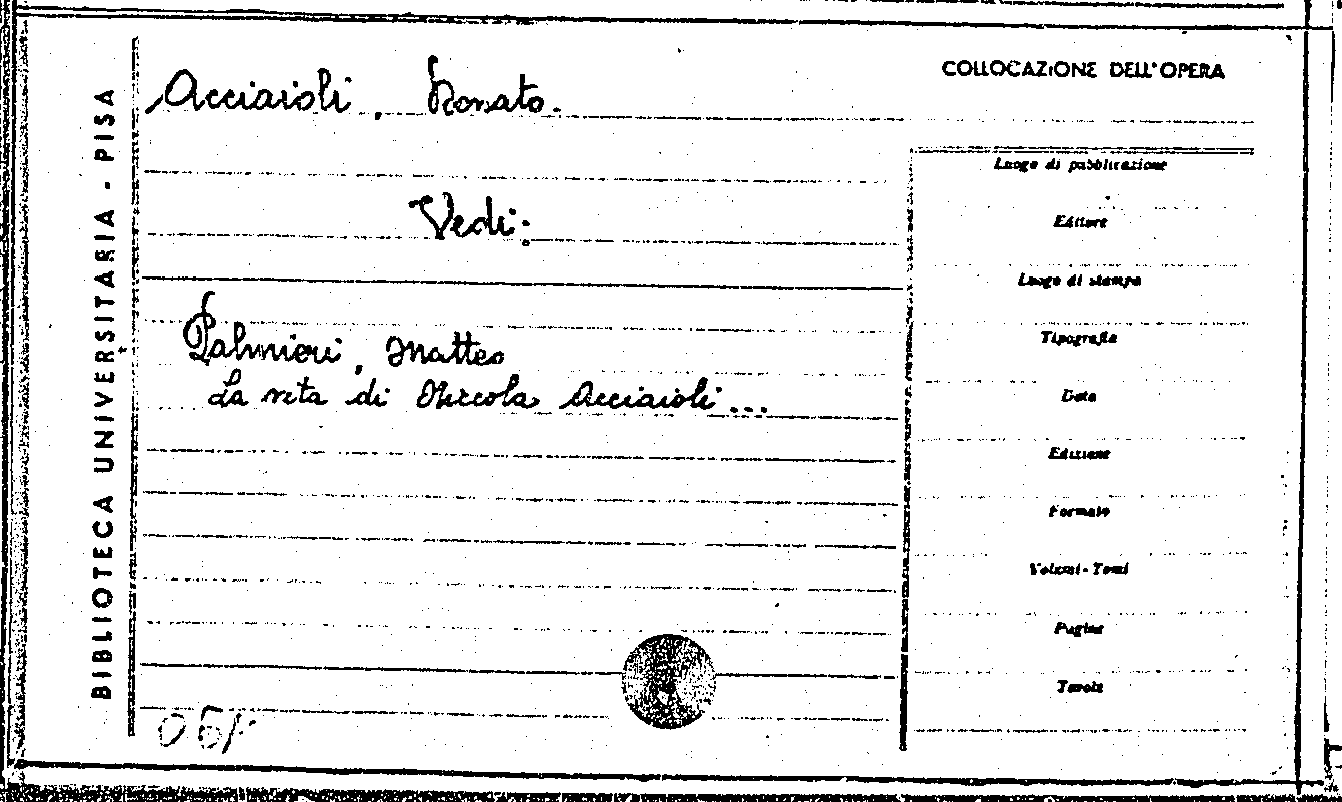 BIBLIOTECA UNIVERSITARIA - PISA
Acciaioli, Donato.
Vedi:
Palmieri, Matteo
La vita di Niccola Acciaioli...
COLLOCAZIONE DELL'OPERA
Luogo di pubblicazione
Editore
Luogo di stampa
Tipografia
Data
Edizione
Formato
Volumi - Tomi
Pagine
Tavole